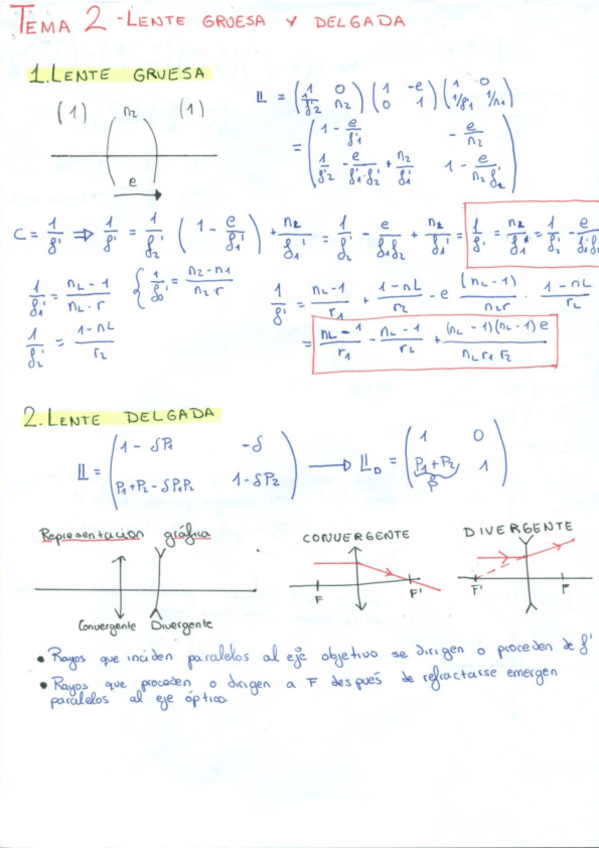 TEMA 2 - LENTE GRUESA Y DELGADA
1. LENTE GRUESA
(1) n2 (1)
e
𝕃 = (1 0; 1/f'2 n2) (1 -e; 0 1) (1 0; 1/f1 1/n1)
= (1 - e/f'1 - e/n2; 1/f'2 - e/f'1·f'2 + n2/f'1 1 - e/n2 f'2)
C = 1/f' ⇒ 1/f' = 1/f'2 (1 - e/f'1) + n2/f'1 = 1/f'2 - e/f'1f'2 + n2/f'1 =
1/f'1 = nL - 1/nL · r { 1/f'0 = n2 - n1/n2 · r
1/f' = nL - 1/r1 + 1 - nL/r2 - e (nL - 1)/n2r · 1 - nL/r2
1/f'2 = 1 - nL/r2
= nL - 1/r1 - nL - 1/r2 + (nL - 1)(nL - 1) e/nL r1 r2
2. LENTE DELGADA
𝕃 = (1 - δP1 -δ; P1 + P2 - δP1P2 1 - δP2) → 𝕃D = (1 0; P1 + P2 1)
P
Representacion gráfica
CONVERGENTE
DIVERGENTE
F F'
F' F
Convergente Divergente
• Rayos que inciden paralelos al eje objetivo se dirigen o proceden de f'
• Rayos que proceden o dirigen a F después de refractarse emergen
paralelos al eje óptico